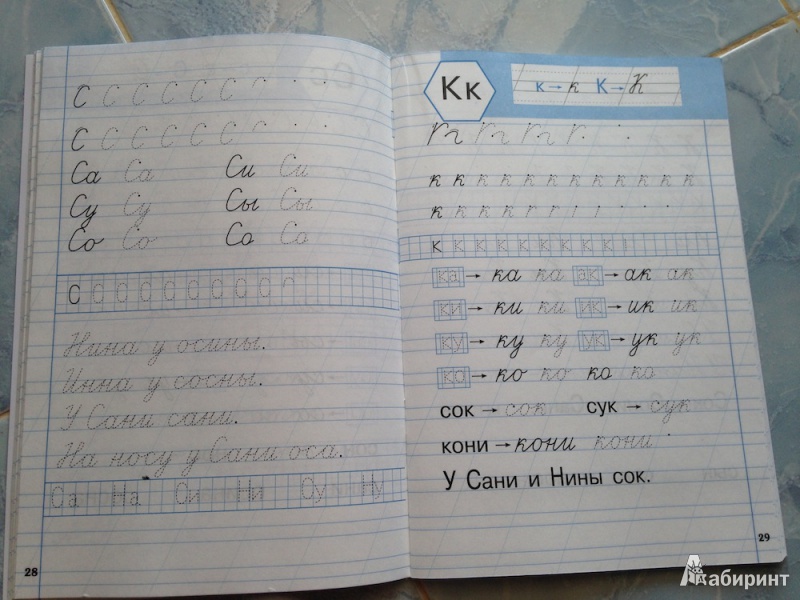 С С С С С С С
С С С С С С С
Са Са Си Си
Су Су Сы Сы
Со Со Со Со
С С С С С С С С С
Нина у осины.
Инна у сосны.
У Сани сани.
На носу у Сани оса.
Са На Си Ни Су Ну
28
Кк к → к К → К
к к к к к к к к к к к к
к к к к
к к к к к к к к к
ка → ка ка ак → ак ак
ки → ки ки ик → ик ик
ку → ку ку ук → ук ук
ко → ко ко ко ко
сок → сок сук → сук
кони → кони кони
У Сани и Нины сок.
29
Лабиринт